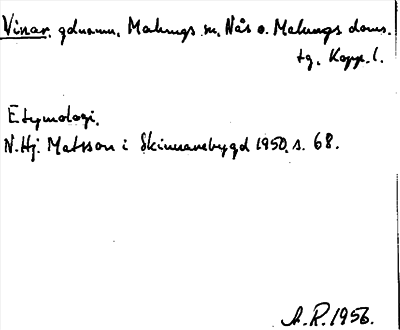 Vinar, gdnamn, Malungs sn, Nås o. Malungs doms.
tg, Kopp. l.
Etymologi.
N. Hj. Matsson i Skinnarebygd 1950, s. 68.
A. R. 1956.